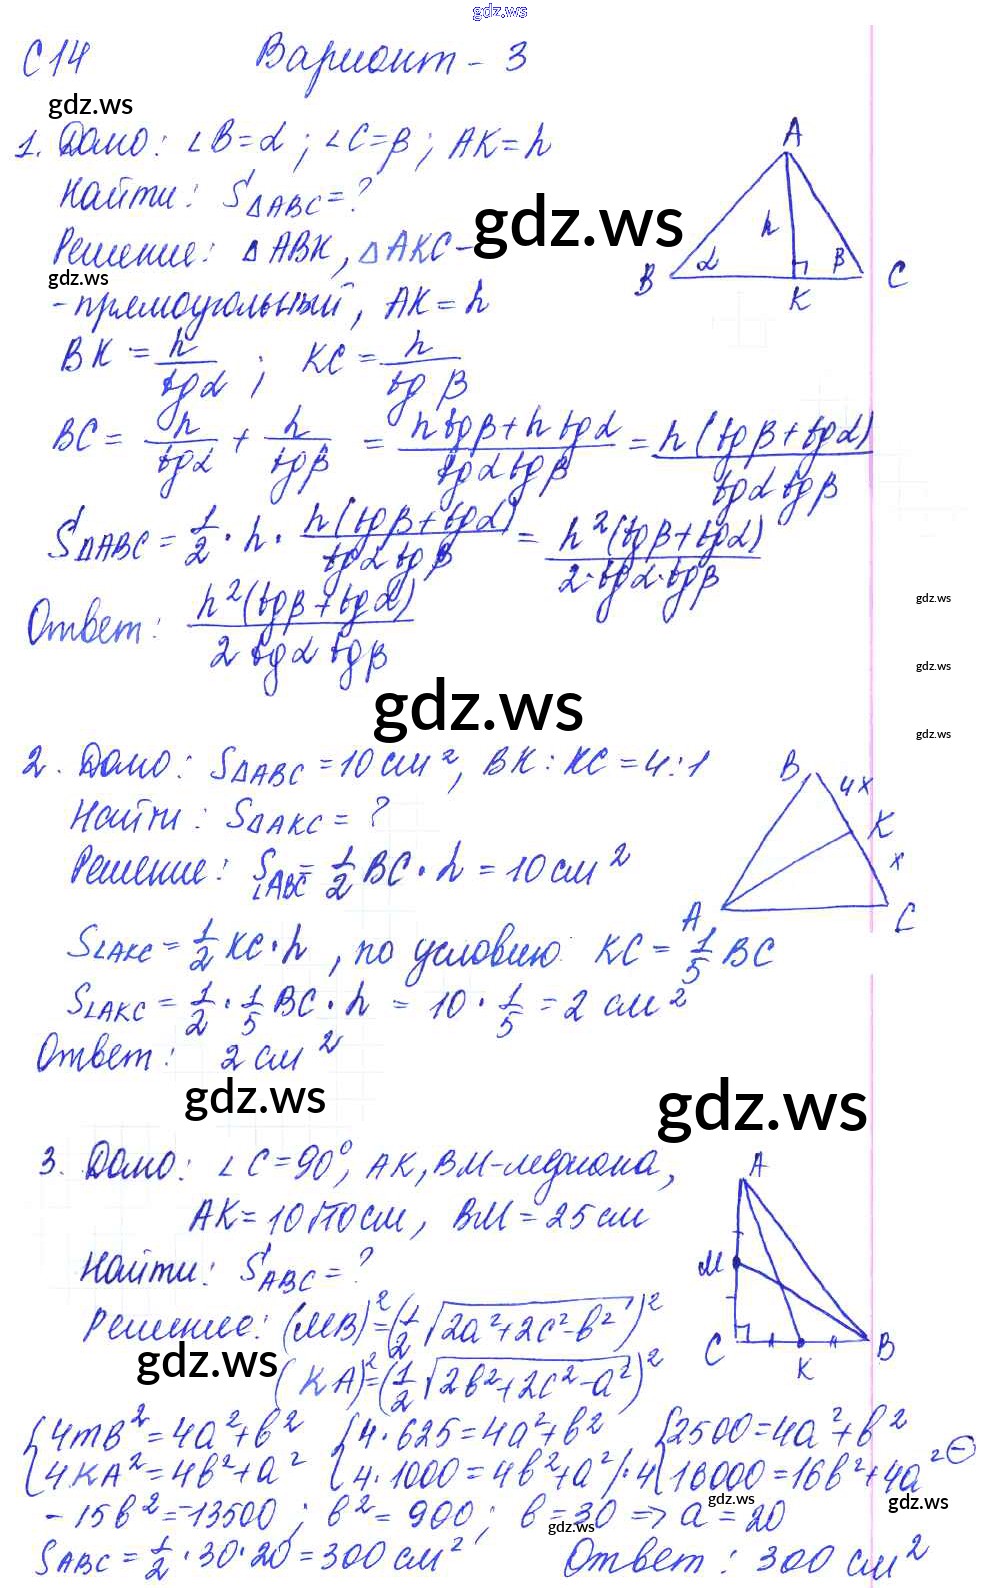 gdz.ws
С 14 Вариант - 3
gdz.ws
1. Дано: ∠B=α ; ∠C=β ; AK=h
Найти: S△ABC=?
gdz.ws
Решение: △ABK, △AKC-
gdz.ws
-прямоугольный, AK=h
A
h
α β
B K C
BK = h/tgα ; KC = h/tg β
BC = h/tgα + h/tgβ = (h tgβ + h tgα)/(tgα tgβ) = h(tgβ+tgα)/(tgα tgβ)
S△ABC = 1/2 · h · h(tgβ+tgα)/(tgα tgβ) = h²(tgβ+tgα)/(2·tgα·tgβ)
Ответ: h²(tgβ+tgα)/(2 tgα tgβ)
gdz.ws
gdz.ws
gdz.ws
gdz.ws
2. Дано: S△ABC=10см², BK:KC=4:1
Найти: S△AKC=?
Решение: S∠ABC=1/2 BC·h=10см²
B
4x
K
x
A C
S∠AKC=1/2 KC·h, по условию KC=1/5 BC
S∠AKC=1/2·1/5 BC·h = 10·1/5=2 см²
Ответ: 2 см²
gdz.ws
gdz.ws
3. Дано: ∠C=90°, AK, BM-медиана,
AK=10√10см, BM=25см
Найти: SABC=?
Решение: (MB)²=(1/2 √2a²+2c²-b²)²
gdz.ws
(KA)²=(1/2 √2b²+2c²-a²)²
A
M
C K B
{4mB²=4a²+b² {4·625=4a²+b² {2500=4a²+b²
{4KA²=4b²+a² {4·1000=4b²+a² /·4 {16000=16b²+4a² (-)
gdz.ws
gdz.ws
-15b²=-13500 ; b²=900; b=30 => a=20
gdz.ws
SABC=1/2·30·20=300см² Ответ: 300 см²